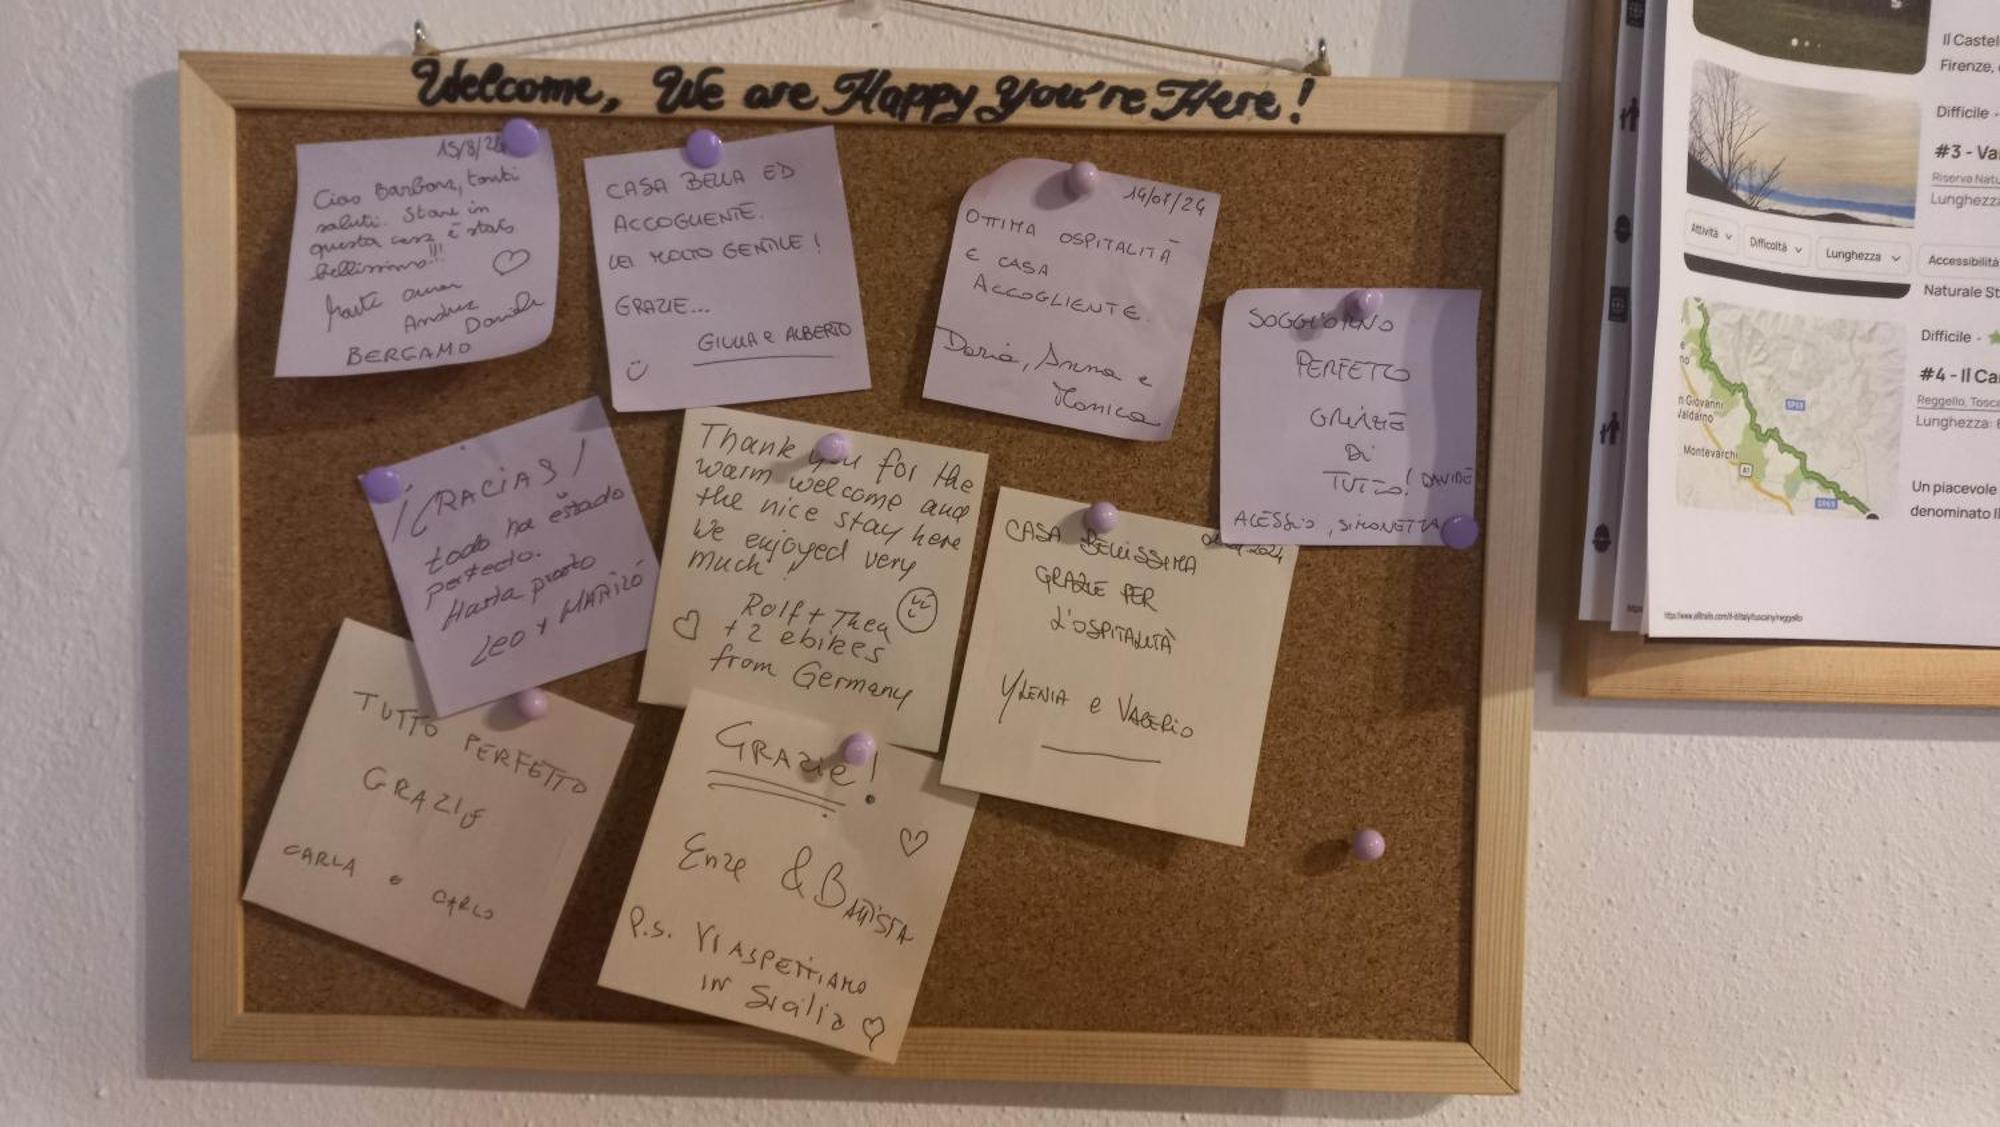 Welcome, We are Happy You're Here!
15/8/24
Ciao Barbara, tanti
saluti. Stare in
questa casa è stato
bellissimo!!!
Andrea
Daniela
BERGAMO
CASA BELLA ED
ACCOGLIENTE.
LEI MOLTO GENTILE!
GRAZIE...
GIULIA e ALBERTO
14/07/24
OTTIMA OSPITALITÀ
E CASA
ACCOGLIENTE.
Daria, Anna e
Monica
SOGGIORNO
PERFETTO
GRAZIE
DI
TUTTO! DAVIDE
ALESSIO, SIMONETTA
¡GRACIAS!
todo ha estado
perfecto.
Hasta pronto
Leo y MARILÓ
Thank you for the
warm welcome and
the nice stay here
We enjoyed very
much!
Rolf + Thea
+ 2 ebikes
from Germany
2024
CASA BELLISSIMA
GRAZIE PER
L'OSPITALITÀ
YLENIA e VALERIO
TUTTO PERFETTO
GRAZIE
CARLA e CARLO
GRAZIE!
Enze & BATTISTA
P.S. VI ASPETTIAMO
IN Sicilia
Il Castel
Firenze,
Difficile -
#3 - Va
Riserva Natu
Lunghezza
Attività
Difficoltà
Lunghezza
Accessibilità
Naturale St
Difficile -
#4 - Il Ca
Reggello, Tosca
Lunghezza: 6
n Giovanni
Valdarno
Montevarchi
A1
Un piacevole
denominato Il